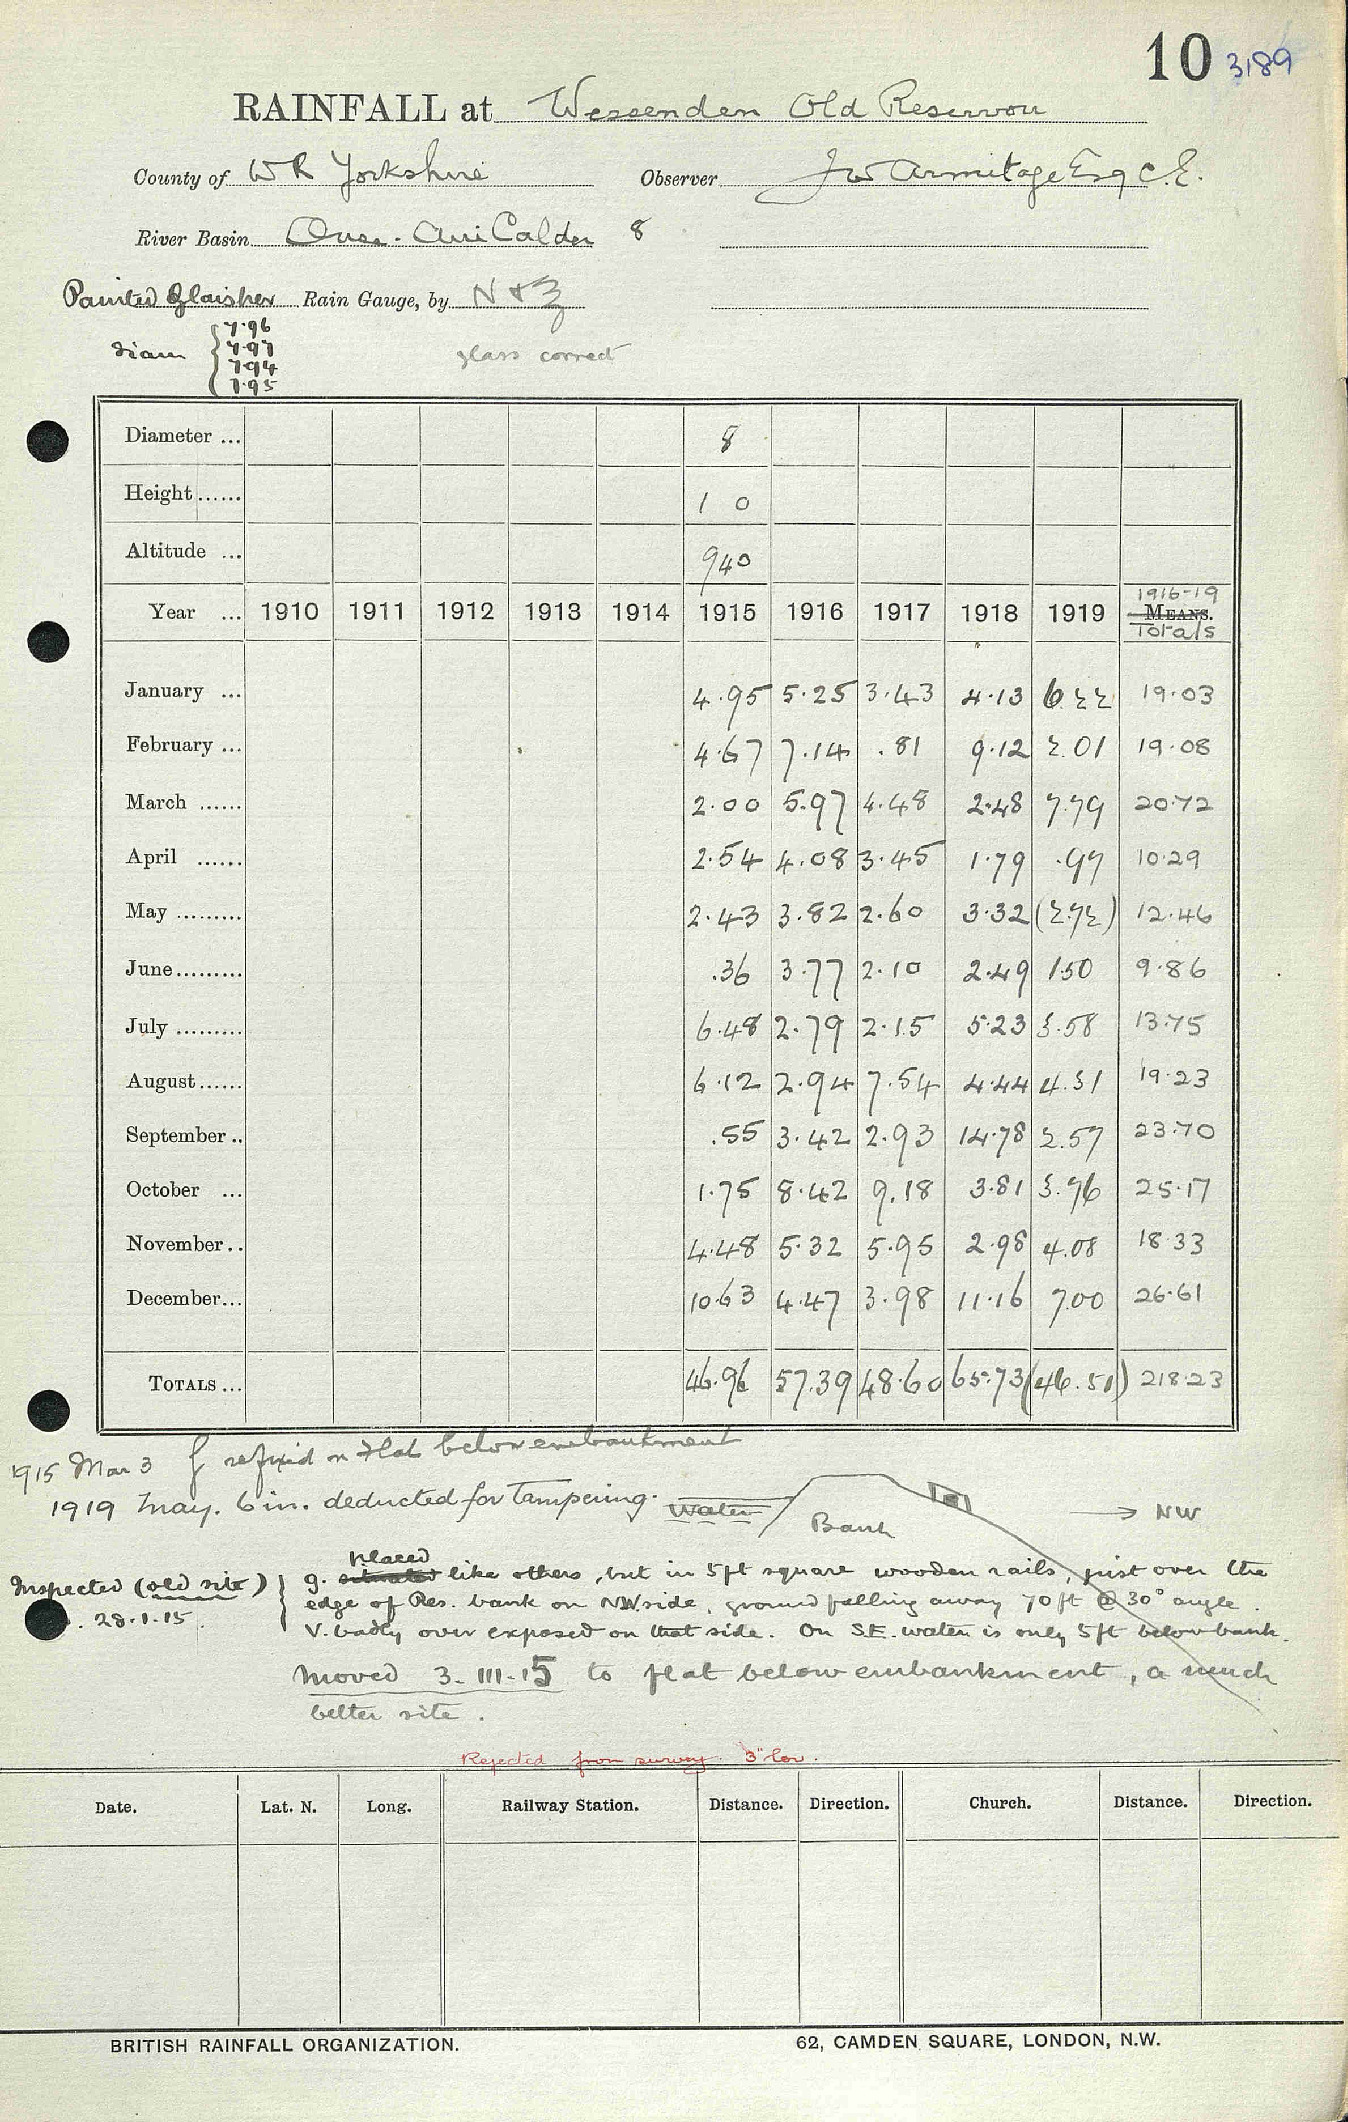 10 3189
RAINFALL at Wessenden Old Reservoir
County of W R Yorkshire Observer J W Armitage Esq C.E.
River Basin Ouse. Aire Calder 8
Painted Glaisher Rain Gauge, by N & Z
Diam { 7.96
7.97
7.94
7.95
glass correct
Diameter ... 8
Height ...... 1 0
Altitude ... 940
Year ... 1910 1911 1912 1913 1914 1915 1916 1917 1918 1919 1916-19 MEANS. Totals
January ... 4.95 5.25 3.43 4.13 6.22 19.03
February ... 4.67 7.14 .81 9.12 2.01 19.08
March ...... 2.00 5.97 4.48 2.48 7.79 20.72
April ...... 2.54 4.08 3.45 1.79 .97 10.29
May ......... 2.43 3.82 2.60 3.32 (2.72) 12.46
June ......... .36 3.77 2.10 2.49 1.50 9.86
July ......... 6.48 2.79 2.15 5.23 3.58 13.75
August ...... 6.12 2.94 7.54 4.44 4.31 19.23
September .. .55 3.42 2.93 14.78 2.57 23.70
October ... 1.75 8.42 9.18 3.81 3.76 25.17
November .. 4.48 5.32 5.95 2.98 4.08 18.33
December ... 10.63 4.47 3.98 11.16 7.00 26.61
TOTALS ... 46.96 57.39 48.60 65.73 (46.51) 218.23
1915 Mar 3 g refixed on flat below embankment
1919 May. 6 in. deducted for tampering.
Water Bank → NW
Inspected (old site) } g. situated placed like others, but in 5ft square wooden rails, just over the
28.1.15. edge of Res. bank on NW side, ground falling away 70ft @ 30° angle.
V. badly over exposed on that side. On S.E. water is only 5ft below bank.
Moved 3.III.15 to flat below embankment, a much
better site.
Rejected from survey 3" low.
Date. Lat. N. Long. Railway Station. Distance. Direction. Church. Distance. Direction.
BRITISH RAINFALL ORGANIZATION. 62, CAMDEN SQUARE, LONDON, N.W.